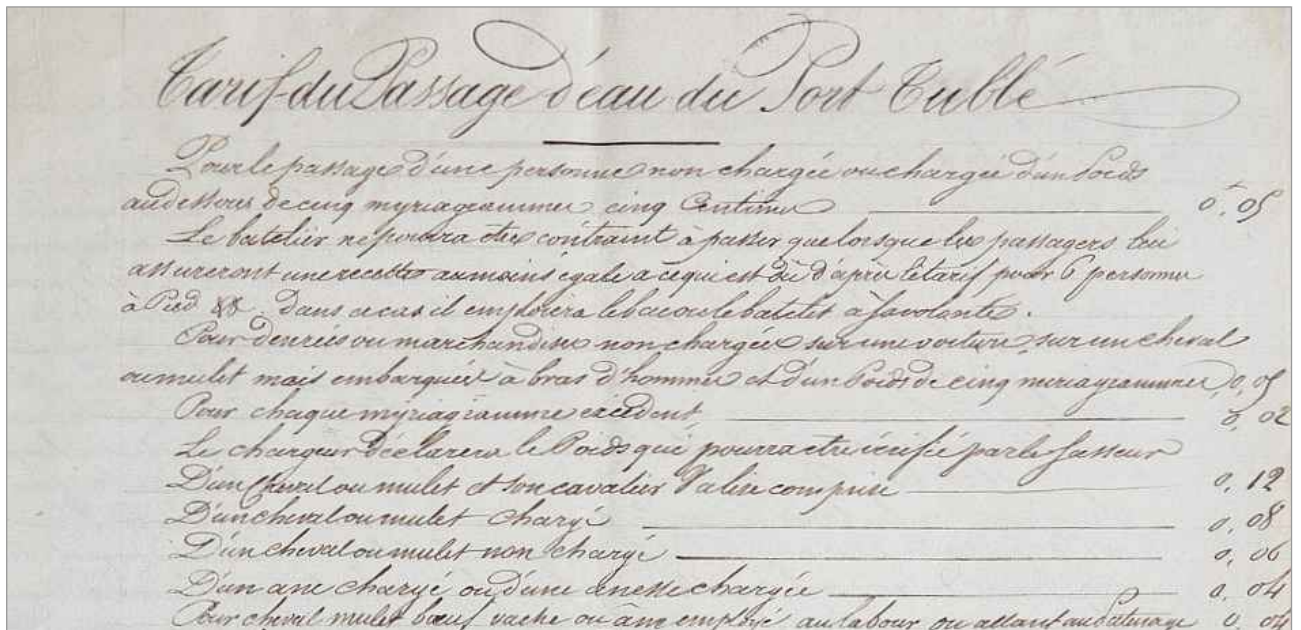 Tarif du Passage d'eau du Port Tublé
Pour le passage d'une personne non chargée ou chargée d'un Poids
au dessous de cinq myriagrammes cinq Centimes 0, 05
Le batelier ne pourra être contraint à passer que lorsque les passagers lui
assureront une recette au moins égale a ce qui est dû d'après le tarif pour 6 personnes
à Pied dans ce cas il emploiera le bac ou le batelet à sa volonté.
Pour denrées ou marchandises non chargées sur une voiture, sur un cheval
ou mulet mais embarquées à bras d'hommes et d'un Poids de cinq miriagrammes 0, 05
Pour chaque myriagramme excédent 0, 02
Le chargeur déclarera le Poids qui pourra être vérifié par le Passeur
D'un Cheval ou mulet et son cavalier Valise comprise 0, 12
D'un cheval ou mulet chargé 0, 08
D'un cheval ou mulet non chargé 0, 06
D'un ane chargé, ou d'une anesse chargée 0, 04
Pour cheval mulet bœuf vache ou âne employé au labour ou allant au Paturage 0, 04